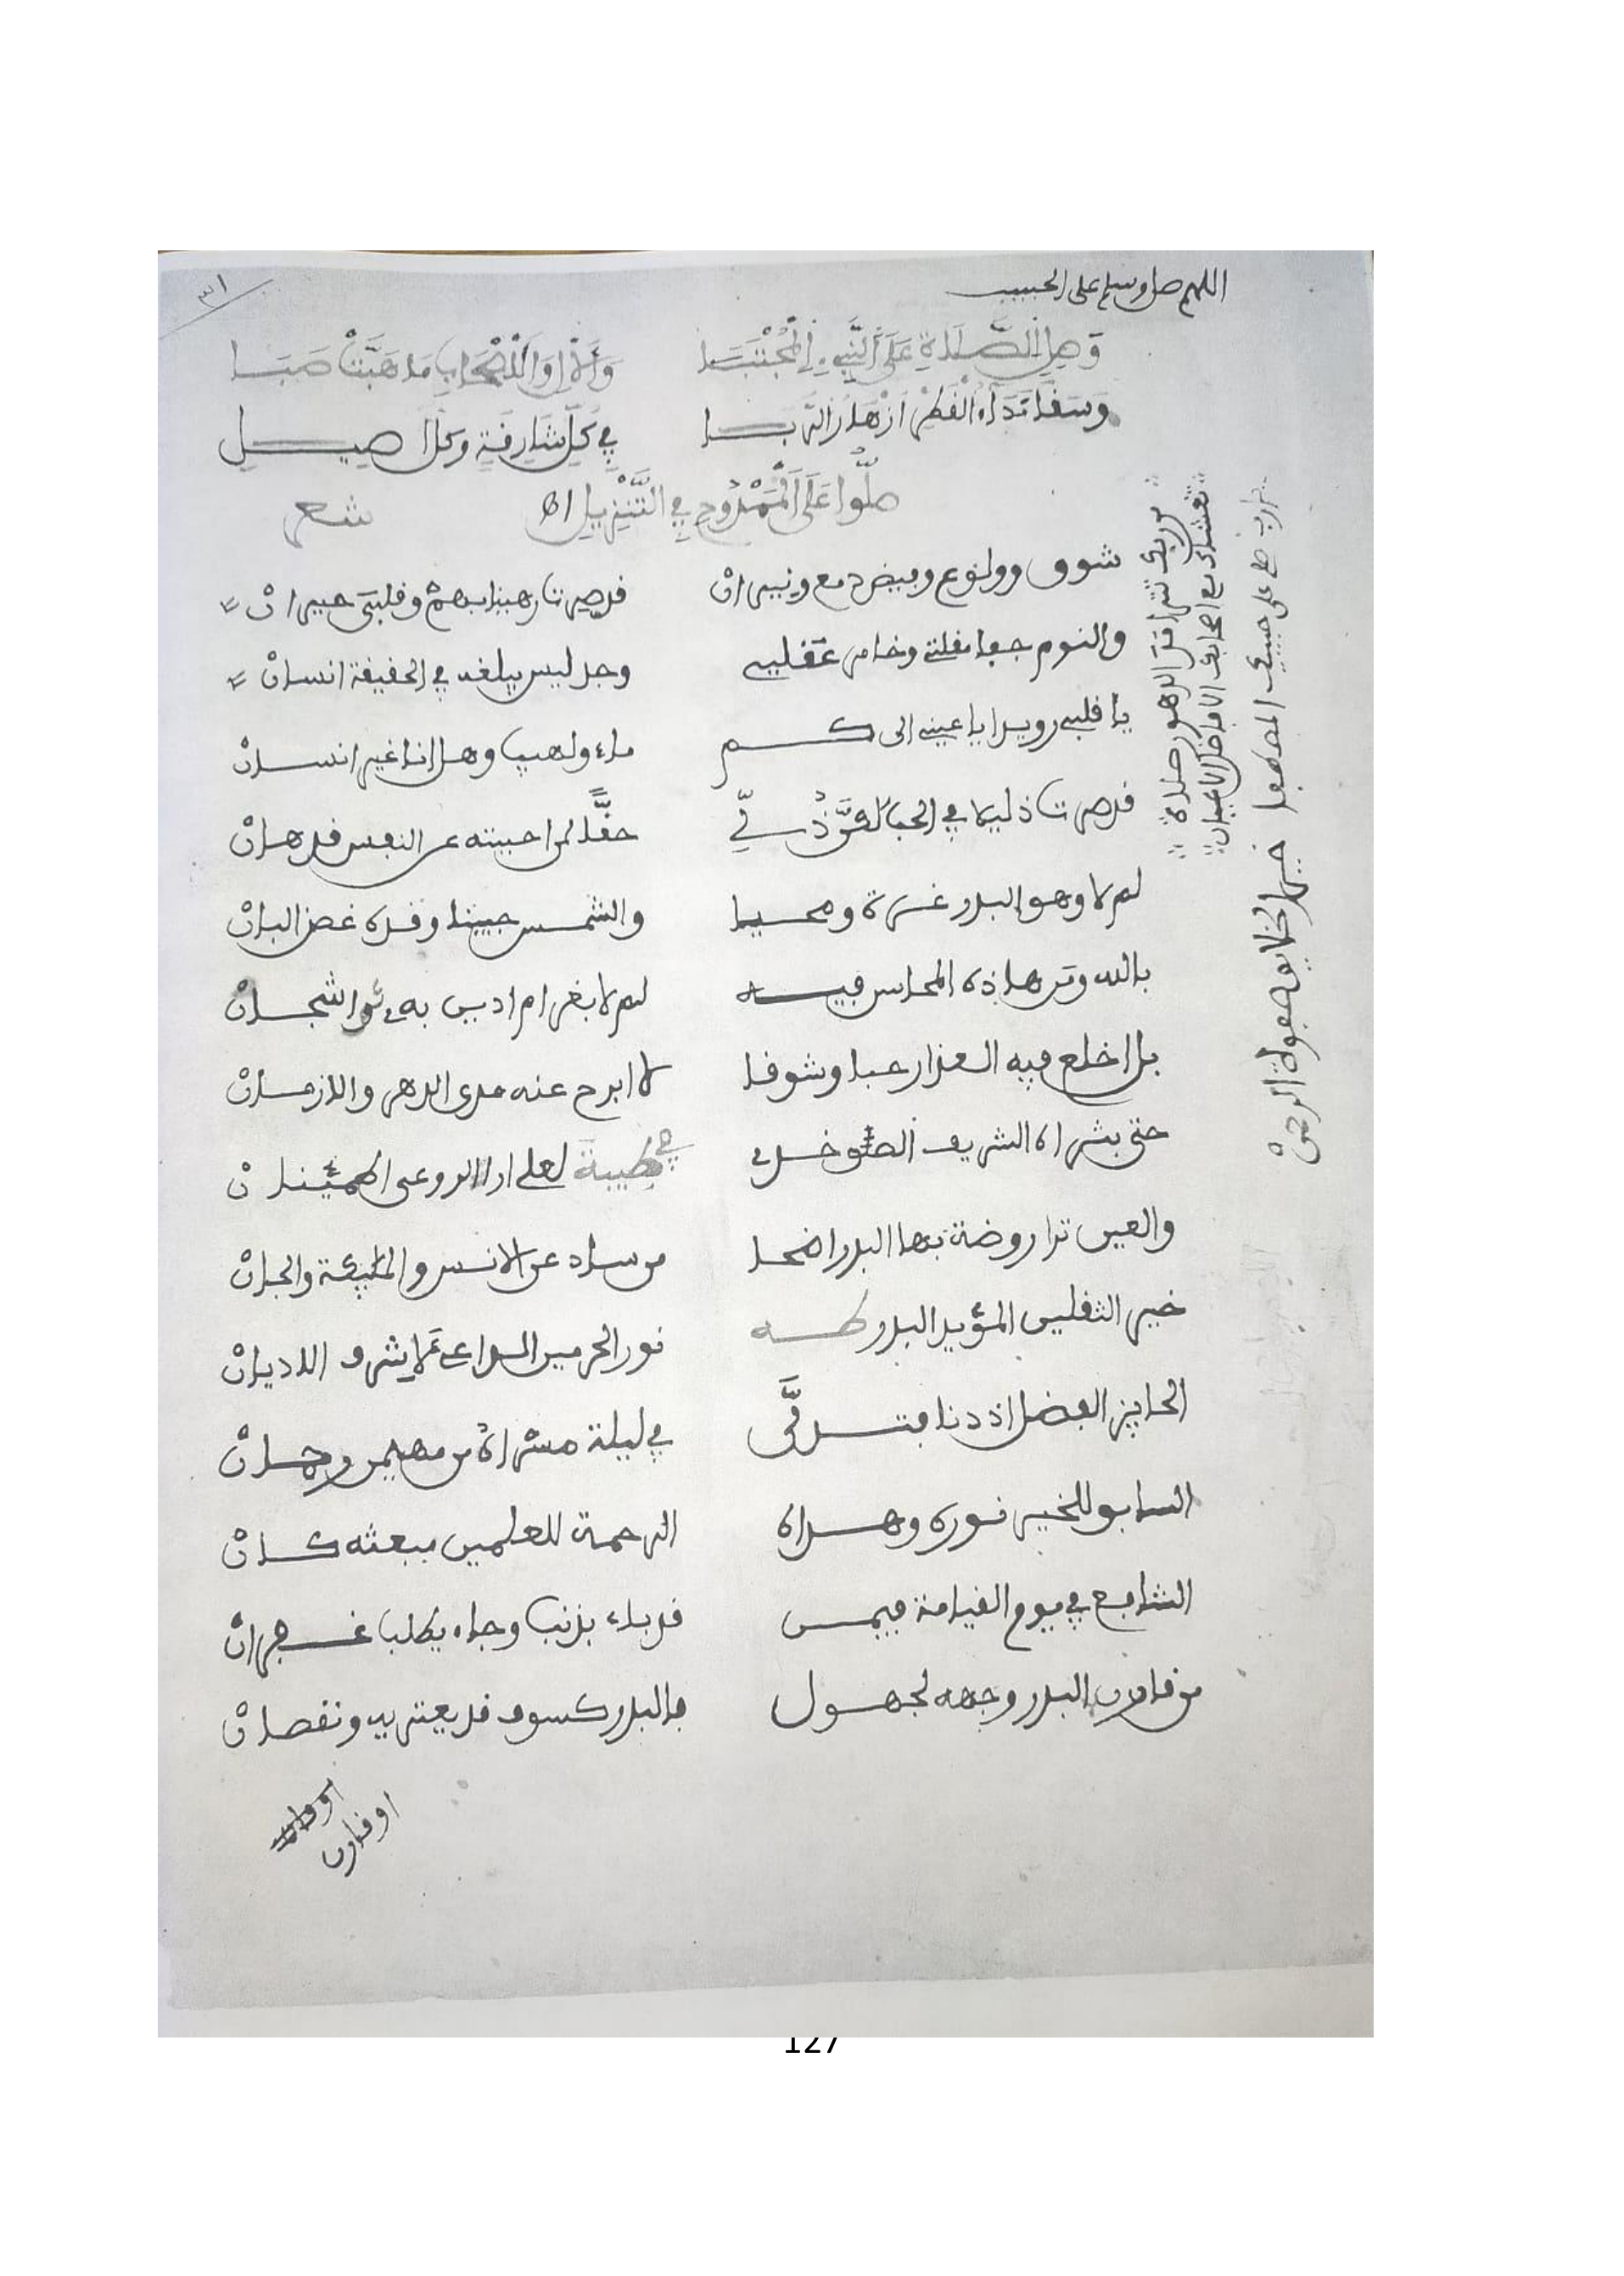 ٣١
اللهم صل وسلم على الحبيب
وَصِلِ الصَّلَاةَ عَلَى النَّبِيِ الْمُجْتَبَا وَالْآلِ وَالْأَصْحَابِ مَا هَبَّتْ صَبَا
وسقا نداء القطر ازهار الربا في كل شارقة وكل اصيل
صلُّوا عَلَى الْمَمْدُوحِ فِي التَّنْزِيلِ اه شعر
شوق وولوع وفيض دمع ونيران قد صرت رهينا بهم وقلبي حيران
والنوم جفا مقلتي وخامر عقلي وجد ليس يبلغه في الحقيقة انسان
يا قلبي رويدا يا عيني الى كم ماء ولهيب وهل انا غير انسان
قد صرت ذليلا في الحب لَقَدْ ذُلِّي حقًّا لمن احببته عن النفس قد هان
لم لا وهو البدر غرة ومحيا والشمس جبينا وقده غض البان
بالله وتر هاذه المحاسن فيه لم لا بغرام ادين به واشجان
بل اخلع فيه العذار حبا وشوقا لا ابرح عنه مدى الدهر والازمان
حتى بشراه الشريف خلي في طيبة لعلي ارا الروعى اطمئنان
والعين ترا روضة بها البدر اضحا من ساد عن الانس والمليكة والجان
خير الثقلين المؤيد البدر طه نور الحرمين الداعي لاشرف الاديان
الحايز الفضل اذ دنا فتدلَّى في ليلة مسراه من مهيمن رحمان
السابق للخير نوره وهداه الرحمة للعلمين مبعثه كان
الشافع في يوم القيامة فيمن قد باء بذنب وجاه يطلب غفران
من قارن البدر وجهه لجهول فالبدر كسوف قد يعتريه ونقصان
او قارن
يا رب صل على حبيبي المصطفا خير الخلايق صفوة الرحمن
يا ربي تترا قدر الدهور صلاة
تغشاه مع اصحابه الافاضل الاعيان
127